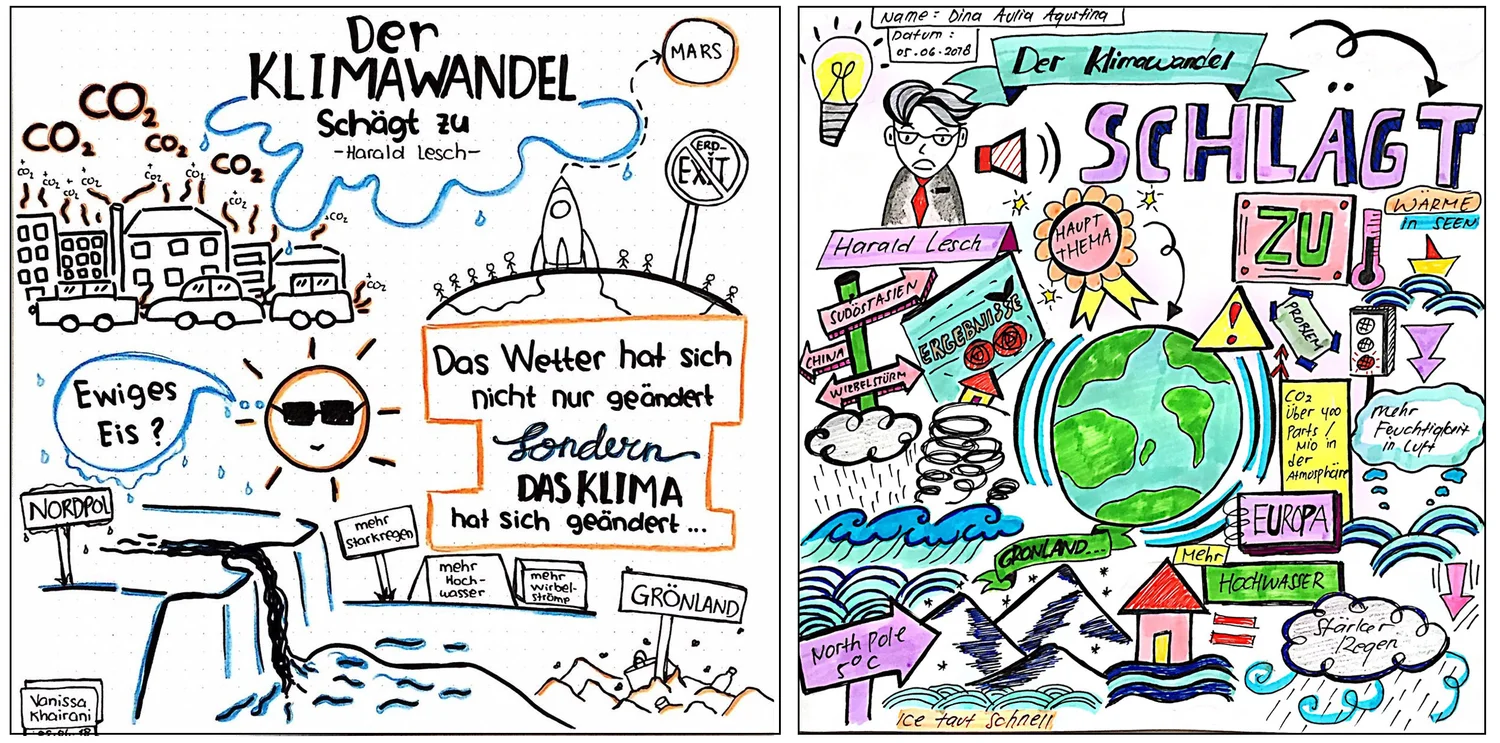 Der
KLIMAWANDEL
Schägt zu
-Harald Lesch-
MARS
CO₂
CO₂
CO₂
CO₂
+CO₂
+CO₂
+CO₂
+CO₂
+CO₂
+CO₂
+CO₂
+CO₂
ERD-
EXIT
Das Wetter hat sich
nicht nur geändert
Sondern
DAS KLIMA
hat sich geändert...
Ewiges
Eis?
NORDPOL
mehr
starkregen
mehr
Hoch-
wasser
mehr
wirbel-
ströme
GRÖNLAND
Vanissa
Khairani
Name: Dina Aulia Agustina
Datum:
05.06.2018
Der Klimawandel
SCHLÄGT
ZU
Harald Lesch
HAUPT
THEMA
WÄRME
in SEEN
SÜDÖSTASIEN
CHINA
WIRBELSTÜRM
ERGEBNISSE
PROBLEM
CO₂
Über 400
Parts /
Mio in
der
Atmosphäre
mehr
Feuchtigkeit
in Luft
EUROPA
GRÖNLAND...
Mehr
HOCHWASSER
North Pole
5°C
Stärker
Regen
Ice taut Schnell